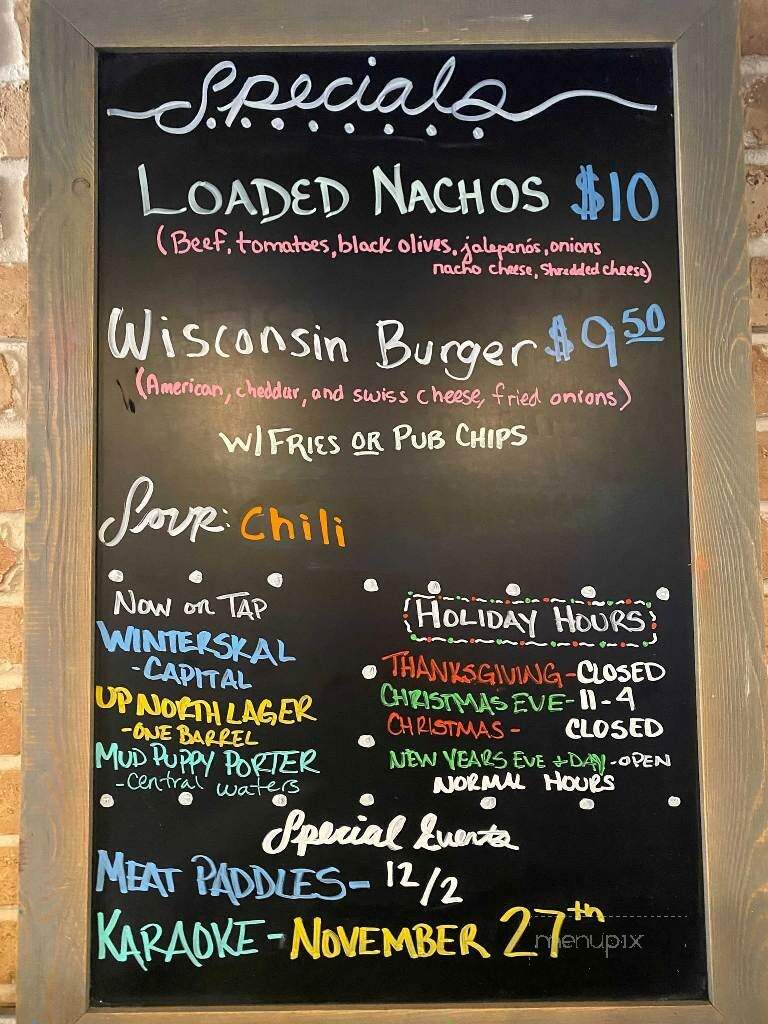 Specials
LOADED NACHOS $10
(Beef, tomatoes, black olives, jalepenós, onions
nacho cheese, shredded cheese)
Wisconsin Burger $9 50
(American, cheddar, and swiss cheese, fried onions)
W/FRIES OR PUB CHIPS
Soup: Chili
NOW on TAP
WINTERSKAL
-CAPITAL
UP NORTH LAGER
-ONE BARREL
MUD PUPPY PORTER
-Central waters
HOLIDAY HOURS
THANKSGIVING-CLOSED
CHRISTMAS EVE-11-4
CHRISTMAS- CLOSED
NEW YEARS EVE + DAY-OPEN
NORMAL HOURS
Special Events
MEAT PADDLES- 12/2
KARAOKE-NOVEMBER 27th
menupix